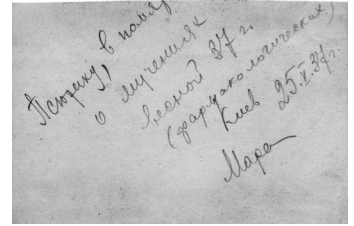 Псюрику, в память
о мучениях
весной 37 г.
(фармакологических)
Киев 25.V.37г.
Мара